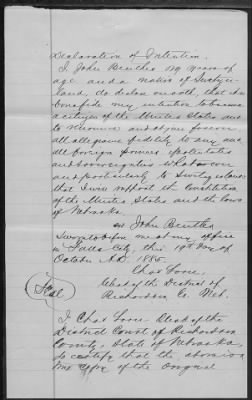 Declaration of Intention.
I John Beutler years of
age and a native of Switzer-
land, do declare on oath, that it is
bonafide my intention to become
a citizen of the United States and
to renounce and abjure forever
all allegiance fidelity to any and
all foreign powers, potentates
and sovereignties Whatsoever
and particularly to Switzerland
that I will support the Constitution
of the United States and the laws
of Nebraska.
John Beutler
Sworn to before me at my office
in Falls City, this 19th day of
October A.D. 1885.
Chas Loree,
Clerk of the District of
Richardson Co. Neb.
(Seal)
I Chas Loree Clerk of the
District Court of Richardson
County, State of Nebraska,
do certify that the above is a
true copy of the original